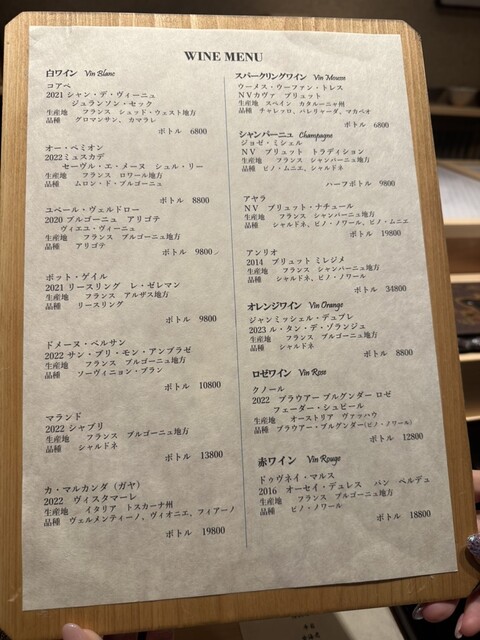 WINE MENU
白ワイン Vin Blanc
コアペ
2021 シャン・デ・ヴィーニュ
ジュランソン・セック
生産地 フランス シュッド・ウェスト地方
品種 グロマンサン、カマラレ
ボトル 6800
オー・ペミオン
2022ミュスカデ
セーヴル・エ・メーヌ シュル・リー
生産地 フランス ロワール地方
品種 ムロン・ド・ブルゴーニュ
ボトル 8800
ユベール・ヴェルドロー
2020 ブルゴーニュ アリゴテ
ヴィエユ・ヴィーニュ
生産地 フランス ブルゴーニュ地方
品種 アリゴテ
ボトル 9800
ポット・ゲイル
2021 リースリング レ・ゼレマン
生産地 フランス アルザス地方
品種 リースリング
ボトル 9800
ドメーヌ・ベルサン
2022 サン・ブリ・モン・アンブラゼ
生産地 フランス ブルゴーニュ地方
品種 ソーヴィニョン・ブラン
ボトル 10800
マランド
2022 シャブリ
生産地 フランス ブルゴーニュ地方
品種 シャルドネ
ボトル 13800
カ・マルカンダ（ガヤ）
2022 ヴィスタマーレ
生産地 イタリア トスカーナ州
品種 ヴェルメンティーノ、ヴィオニエ、フィアーノ
ボトル 19800
スパークリングワイン Vin Mouss
ウーメス・ウーファン・トレス
NVカヴァ ブリュット
生産地 スペイン カタルーニャ州
品種 チャレッロ、パレリャーダ、マカベオ
ボトル 6800
シャンパーニュ Champagne
ジョゼ・ミシェル
NV ブリュット トラディション
生産地 フランス シャンパーニュ地方
品種 ピノ・ムニエ、シャルドネ
ハーフボトル 9800
アヤラ
NV ブリュット・ナチュール
生産地 フランス シャンパーニュ地方
品種 シャルドネ、ピノ・ノワール、ピノ・ムニエ
ボトル 19800
アンリオ
2014 ブリュット ミレジメ
生産地 フランス シャンパーニュ地方
品種 シャルドネ、ピノ・ノワール
ボトル 34800
オレンジワイン Vin Orange
ジャンミッシェル・デュプレ
2023 ル・タン・デ・ゾランジュ
生産地 フランス ブルゴーニュ地方
品種 シャルドネ
ボトル 8800
ロゼワイン Vin Ross
クノール
2022 ブラウアー ブルグンダー ロゼ
フェーダー・シュピール
生産地 オーストリア ヴァッハウ
品種 ブラウアー・ブルグンダー(ピノ・ノワール)
ボトル 12800
赤ワイン Vin Rouge
ドゥヴネイ・マルス
2016 オーセイ・デュレス バン ペルデュ
生産地 フランス ブルゴーニュ地方
品種 ピノ・ノワール
ボトル 18800